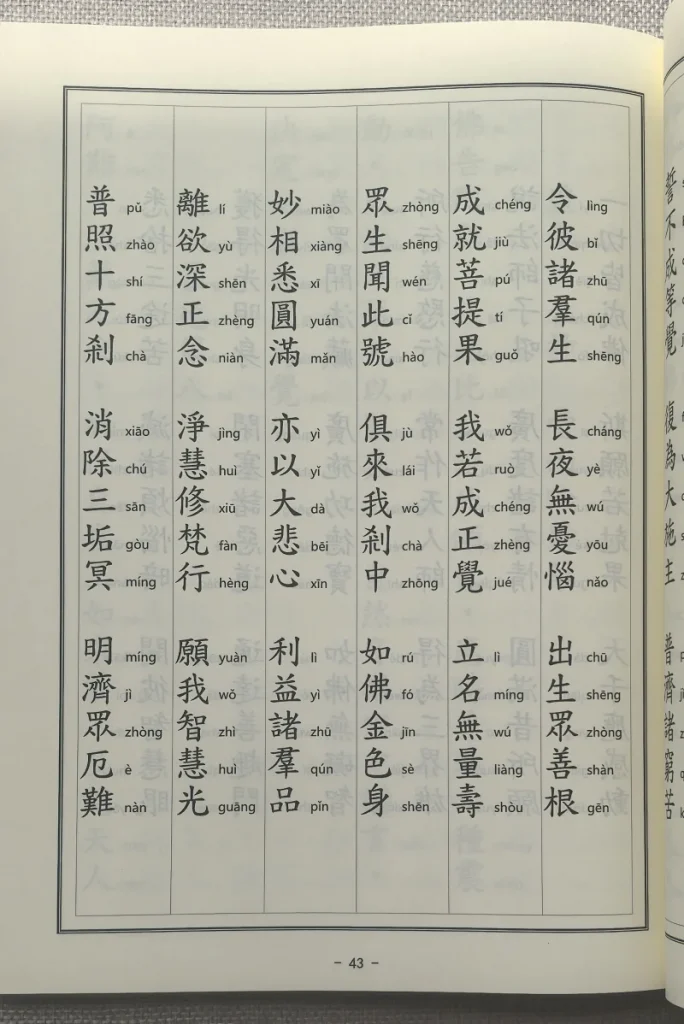 誓不成等覺 復為大施主 普濟諸窮苦
令 lìng 彼 bǐ 諸 zhū 羣 qún 生 shēng 長 cháng 夜 yè 無 wú 憂 yōu 惱 nǎo 出 chū 生 shēng 眾 zhòng 善 shàn 根 gēn
成 chéng 就 jiù 菩 pú 提 tí 果 guǒ 我 wǒ 若 ruò 成 chéng 正 zhèng 覺 jué 立 lì 名 míng 無 wú 量 liàng 壽 shòu
眾 zhòng 生 shēng 聞 wén 此 cǐ 號 hào 俱 jù 來 lái 我 wǒ 剎 chà 中 zhōng 如 rú 佛 fó 金 jīn 色 sè 身 shēn
妙 miào 相 xiàng 悉 xī 圓 yuán 滿 mǎn 亦 yì 以 yǐ 大 dà 悲 bēi 心 xīn 利 lì 益 yì 諸 zhū 羣 qún 品 pǐn
離 lí 欲 yù 深 shēn 正 zhèng 念 niàn 淨 jìng 慧 huì 修 xiū 梵 fàn 行 hèng 願 yuàn 我 wǒ 智 zhì 慧 huì 光 guāng
普 pǔ 照 zhào 十 shí 方 fāng 剎 chà 消 xiāo 除 chú 三 sān 垢 gòu 冥 míng 明 míng 濟 jì 眾 zhòng 厄 è 難 nàn
- 43 -